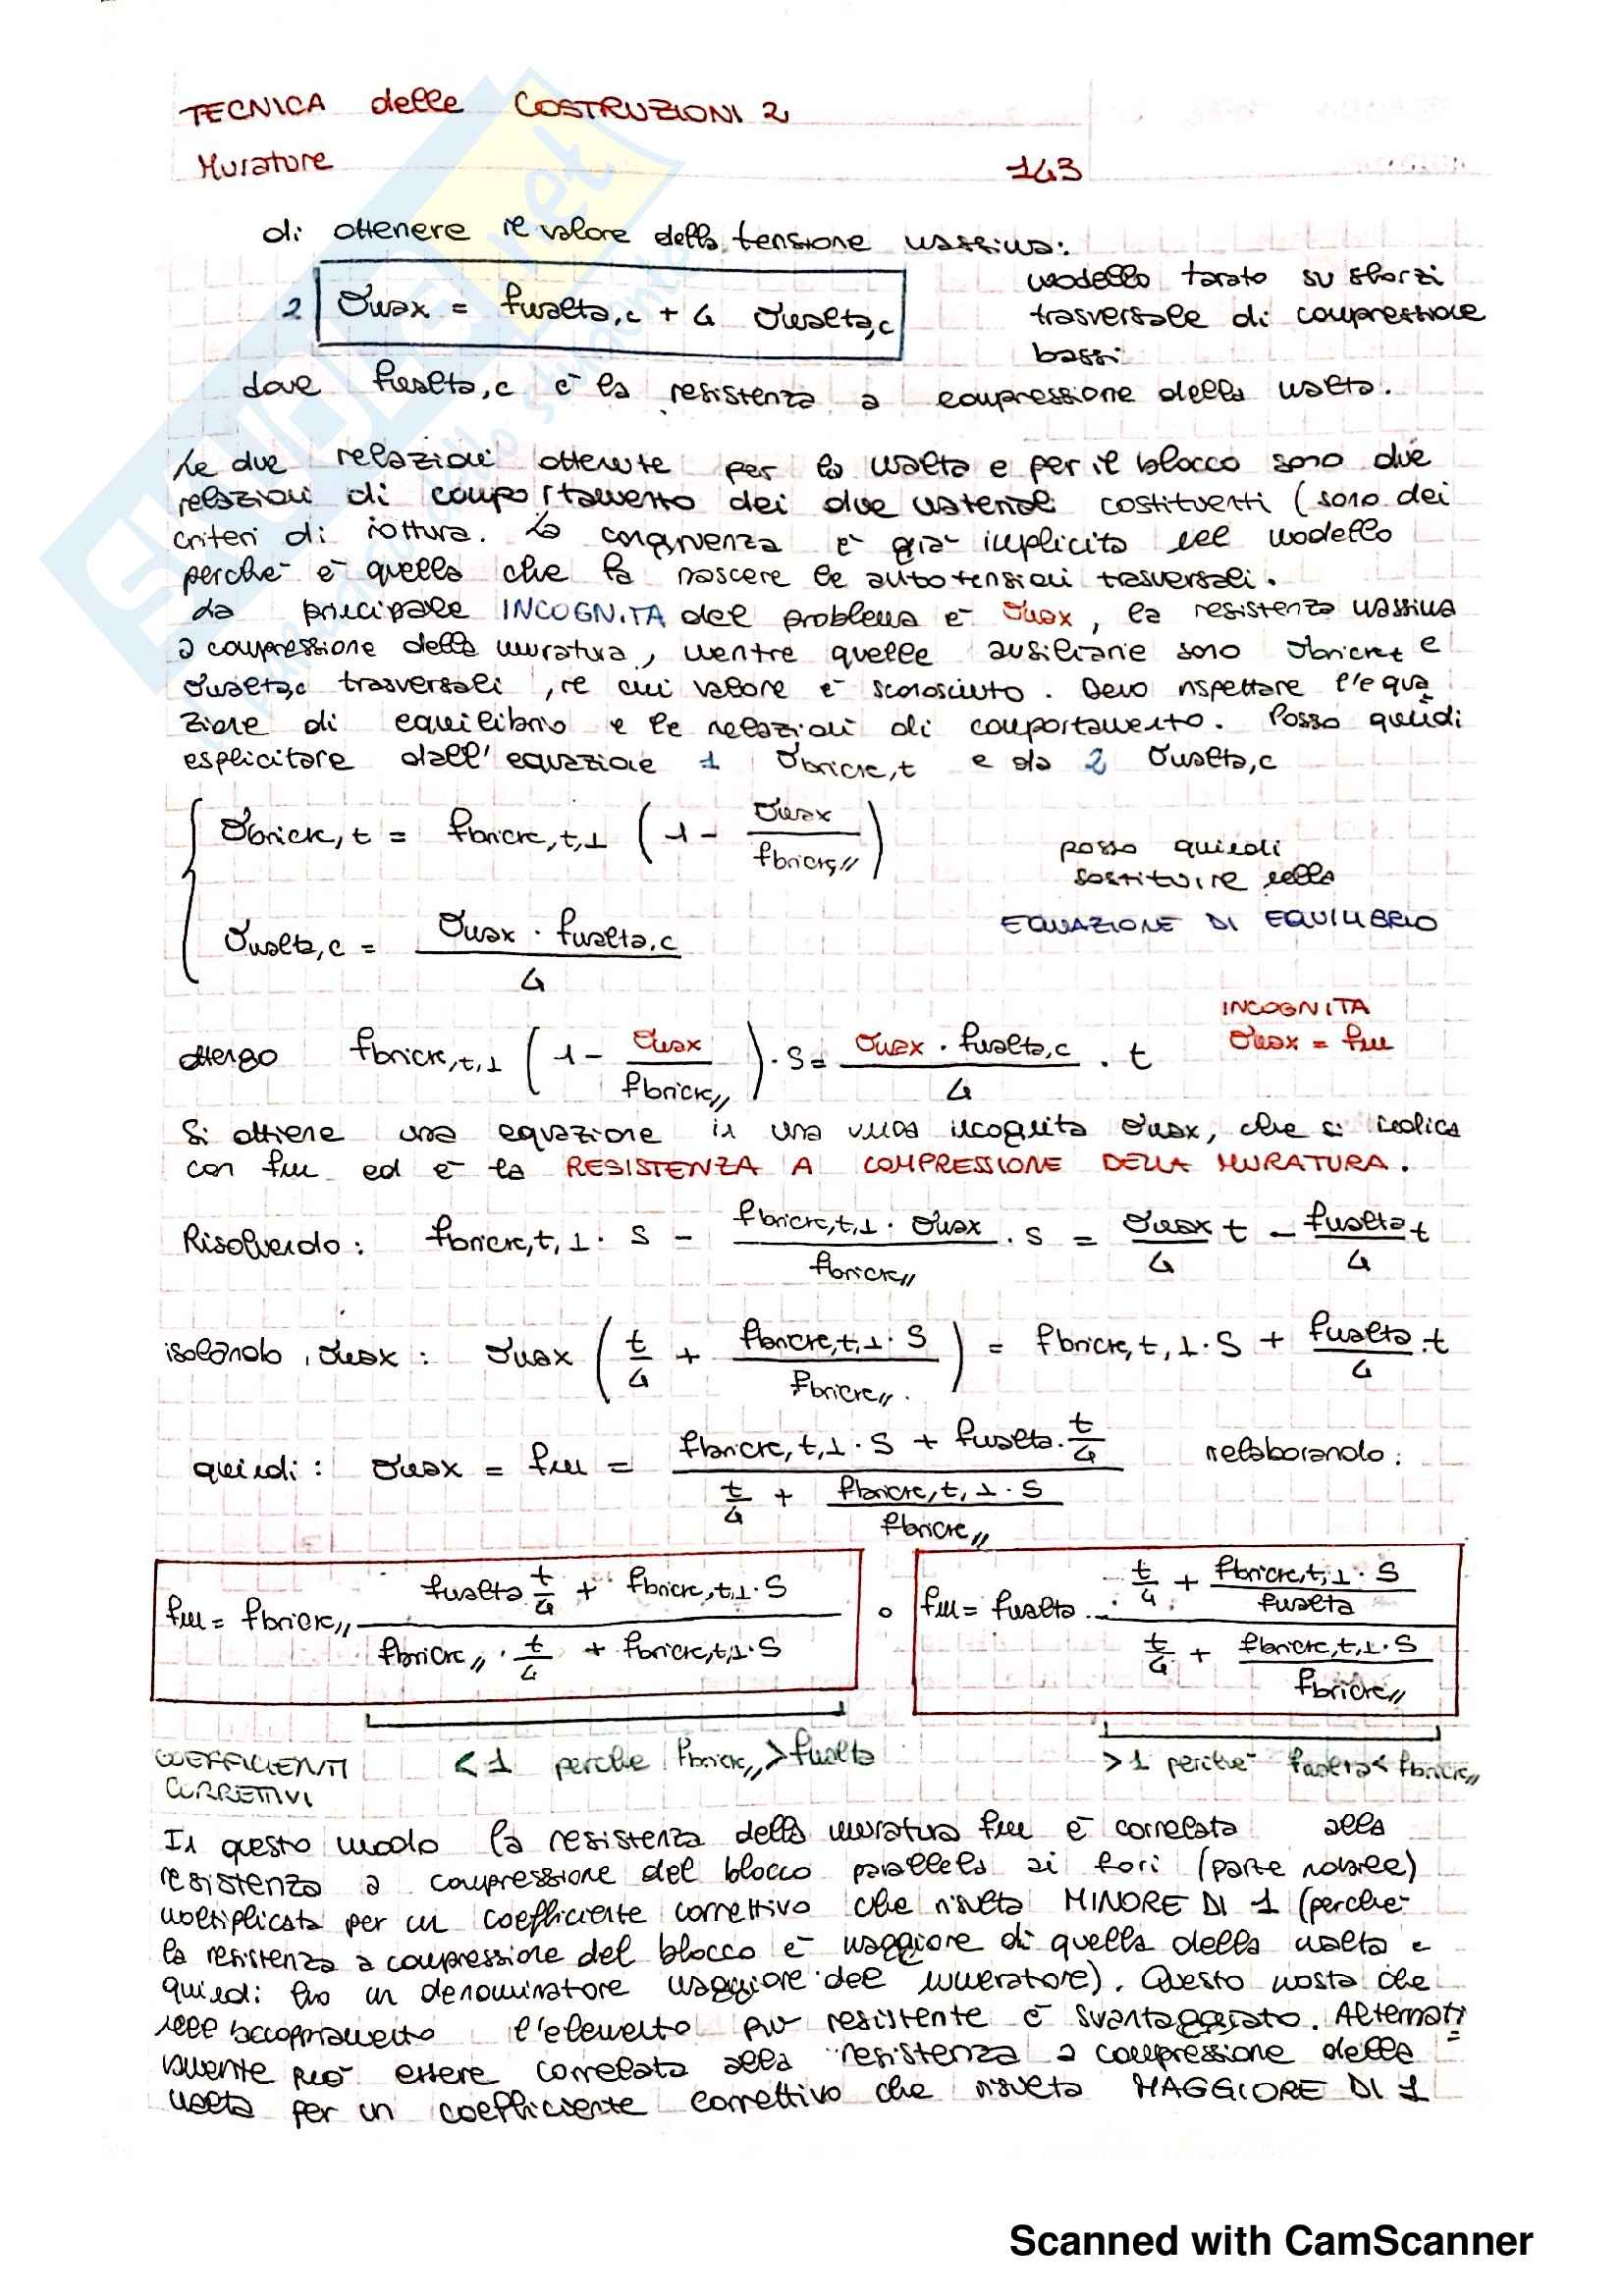 TECNICA delle COSTRUZIONI 2
Murature 143
di ottenere il valore della tensione massima:
2 σmax = fmalta,c + 4 σmalta,c
modello tarato su sforzi
trasversale di compressione
bassi
dove fmalta,c è la resistenza a compressione della malta.
Le due relazioni ottenute per la malta e per il blocco sono due
relazioni di comportamento dei due materiali costituenti (sono dei
criteri di rottura. La congruenza è già implicita nel modello
perché è quella che fa nascere le autotensioni trasversali.
La principale INCOGNITA del problema è σmax, la resistenza massima
a compressione della muratura, mentre quelle ausiliarie sono σbrick,t e
σmalta,c trasversali, il cui valore è sconosciuto. Devo rispettare l'equa
zione di equilibrio e le relazioni di comportamento. Posso quindi
esplicitare dall'equazione 1 σbrick,t e da 2 σmalta,c
σbrick,t = fbrick,t,⊥ (1 - σmax / fbrick,//)
posso quindi
sostituire nella
EQUAZIONE DI EQUILIBRIO
σmalta,c = σmax · fmalta,c / 4
ottengo fbrick,t,⊥ (1 - σmax / fbrick,//) · s = σmax · fmalta,c / 4 · t
INCOGNITA
σmax = fm
Si ottiene una equazione in una unica incognita σmax, che si indica
con fm ed è la RESISTENZA A COMPRESSIONE DELLA MURATURA.
Risolvendo: fbrick,t,⊥ · s - fbrick,t,⊥ · σmax / fbrick// · s = σmax / 4 t - fmalta / 4 t
isolando σmax: σmax (t/4 + fbrick,t,⊥ · s / fbrick//) = fbrick,t,⊥ · s + fmalta / 4 · t
quindi: σmax = fm = fbrick,t,⊥ · s + fmalta · t/4 / t/4 + fbrick,t,⊥ · s / fbrick// rielaborando:
fm = fbrick// fmalta t/4 + fbrick,t,⊥ · s / fbrick// · t/4 + fbrick,t,⊥ · s o fm = fmalta · t/4 + fbrick,t,⊥ · s / fmalta / t/4 + fbrick,t,⊥ · s / fbrick//
COEFFICIENTI
CORRETTIVI
< 1 perche fbrick// > fmalta
> 1 perche fmalta < fbrick//
In questo modo la resistenza della muratura fm è correlata alla
resistenza a compressione del blocco parallela ai fori (parte nobile)
moltiplicata per un coefficiente correttivo che risulta MINORE DI 1 (perche
la resistenza a compressione del blocco è maggiore di quella della malta e
quindi ho un denominatore maggiore del numeratore). Questo mostra che
nell'accoppiamento l'elemento più resistente è svantaggiato. Alternati
vamente può essere correlata alla resistenza a compressione della
malta per un coefficiente correttivo che risulta MAGGIORE DI 1
Scanned with CamScanner